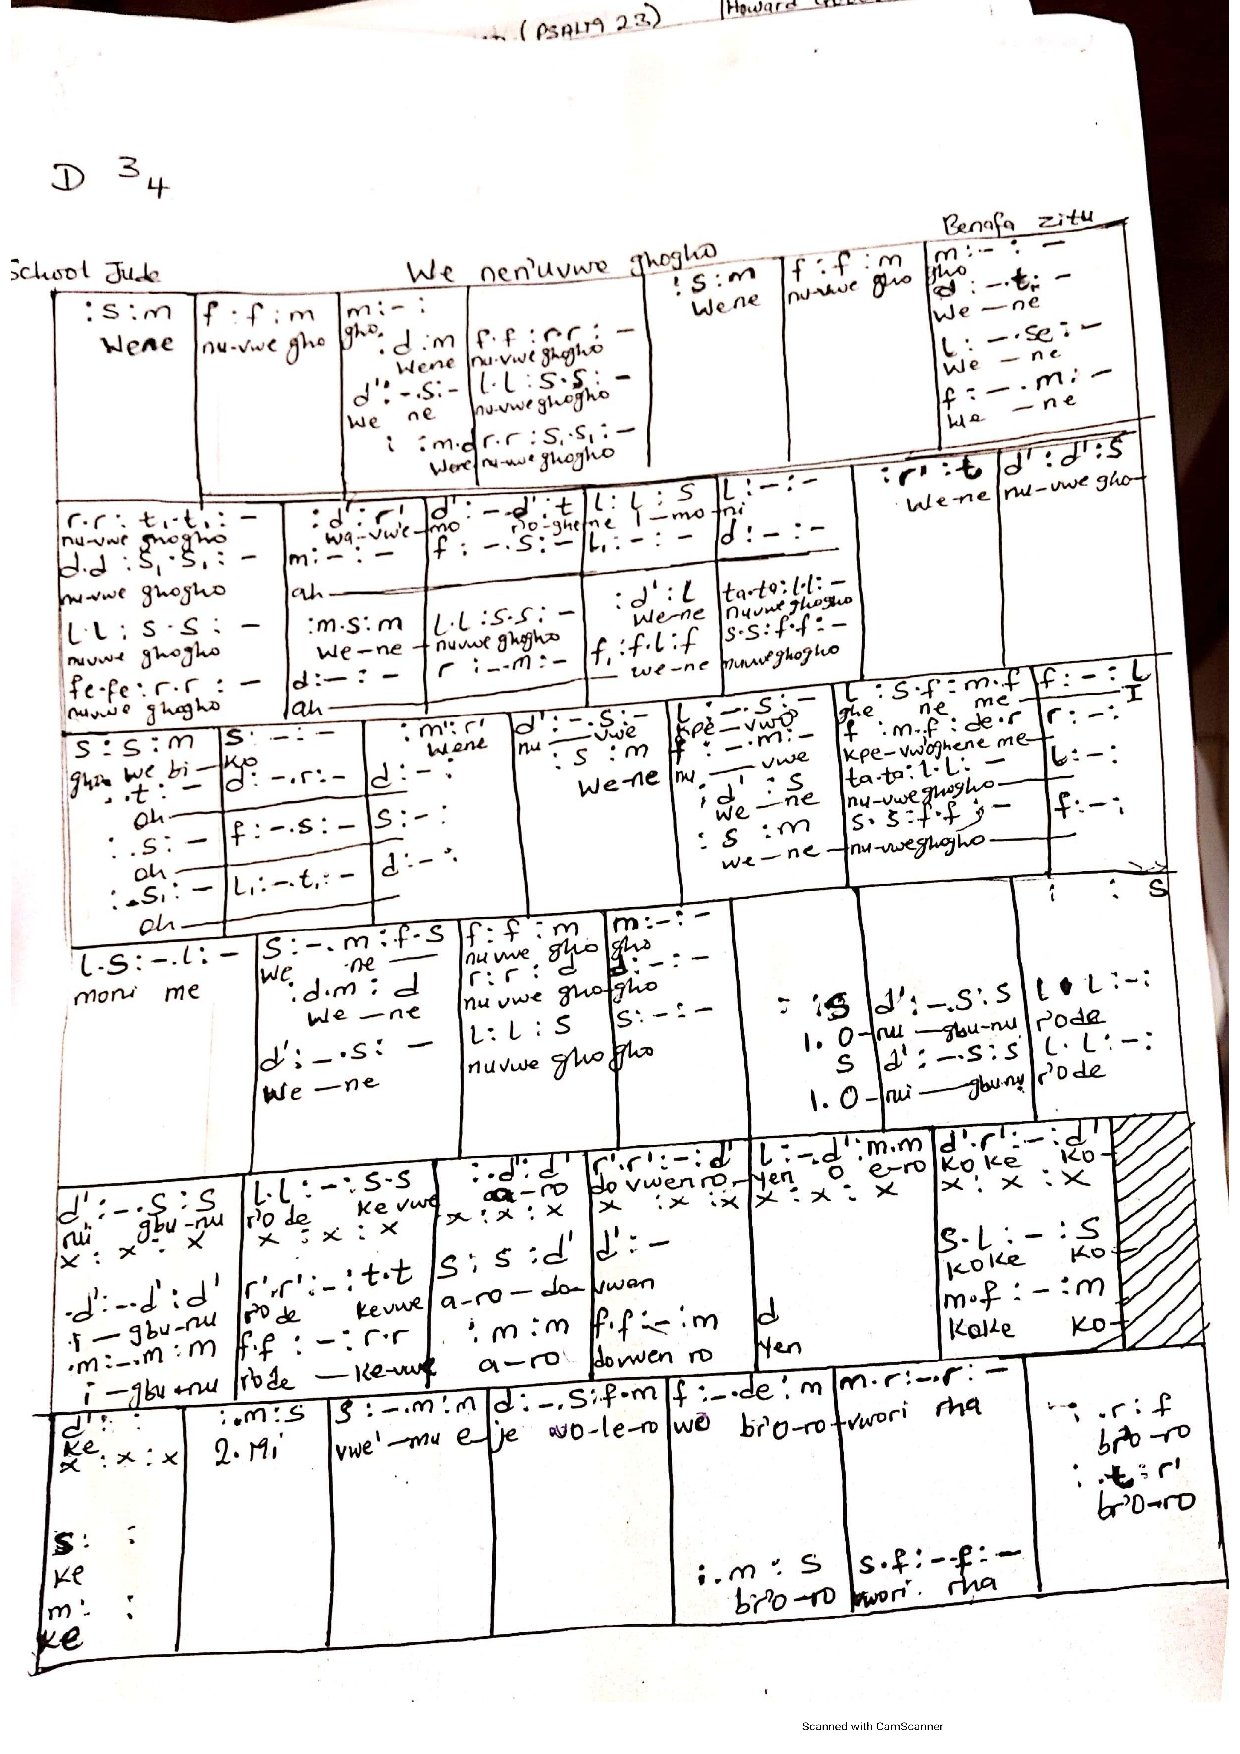 (PSALM 23)
Howard
D 3 4
Benafa zitu
School Jude
We nen'uvwe ghogho
: s : m
f : f : m
m : - :
: s : m
f : f : m
m : - : -
Wene
nu-vwe gho
gho.
Wene
nu-vwe gho
gho
. d : m
f . f : r . r : -
d : - . t₁ : -
Wene
nu-vwe ghogho
We - ne
d' : - . s : -
l . l : s . s : -
l : - . se : -
We ne
nu-vwe ghogho
We - ne
: : m . d
r . r : s₁ . s₁ : -
f : - . m : -
Wene
nu-vwe ghogho
We - ne
r . r : t₁ . t₁ : -
: d' : r'
d' : - . d' : t
l : l : s
l : - : -
: r' : t
d' : d' : s
nu-vwe ghogho
wa-vwe-
mo ro-ghe
ne I-mo-
ni
We-ne
nu-vwe gho-
d . d : s₁ . s₁ : -
m : - : -
f : - . s : -
l₁ : - : -
d : - : -
nu-vwe ghogho
ah
l . l : s . s : -
: m . s : m
l . l : s . s : -
: d' : l
ta . ta : l . l : -
nuvwe ghogho
We-ne
nuvwe ghogho
We-ne
nuvwe ghogho
fe . fe : r . r : -
d : - : -
r : - . m : -
f₁ : f . l : f
s . s : f . f : -
nuvwe ghogho
ah
we-ne
nuvwe ghogho
s : s : m
s : - : -
: m' : r'
d' : - . s : -
l : - . s : -
l : s . f : m . f
f : - : l
gho we bi-
ko
Wene
nu - vwe
kpe - vwo
ghe ne me
I
. t : -
d : - . r : -
d : - :
: s : m
f : - . m : -
f : m . f : de . r
r : - :
oh
We-ne
nu vwe
kpe-vwoghene me
: . s : -
f : - . s : -
s : - :
: d' : s
ta . ta : l . l : -
l : - :
oh
We - ne
nu-vwe ghogho
: . s₁ : -
l₁ : - . t₁ : -
d : - :
: s : m
s . s : f . f : -
f : - :
oh
we - ne
nu-vwe ghogho
l . s : - . l : -
s : - . m : f . s
f : f : m
m : - : -
: : s
moni me
We ne
nuvwe gho
gho
: d . m : d
r : r : d
d : - : -
: : s
d' : - . s : s
l . l : - :
We - ne
nu vwe gho
gho
1. O-
rui - gbu-nu
r'ode
d' : - . s : -
l : l : s
s : - : -
s
d' : - . s : s
l . l : - :
We - ne
nuvwe gho
gho
1. O-
rui gbu-nu
r'ode
d' : - . s : s
l . l : - : s . s
: . d' : d'
r' . r' : - : d'
l : - . d' : m . m
d' . r' : - : d'
rui gbu-nu
r'o de ke vwe
a-ro
do vwen ro-
yen o e-ro
ko ke ko-
x : x : x
x : x : x
x : x : x
x : x : x
x : x : x
x : x : x
. d' : - . d' : d'
r' . r' : - : t . t
s : s : d'
d' : -
s . l : - : s
i - gbu-nu
r'o de kevwe
a-ro-do-
vwan
koke ko-
. m : - . m : m
f . f : - : r . r
: m : m
f . f : - : m
d
m . f : - : m
i - gbu-nu
r'o de - ke-vwe
a-ro
dovwen ro
yen
koke ko-
d' : :
: . m : s
s : - . m : m
d : - . s : f . m
f : - . de : m
m . r : - . r : -
: . r : f
ke
2. Mi
vwe' - mu e-
je vo-le-ro
wo br'o-ro-
vwori rha
br'o-ro
x : x : x
: . t : r'
br'o-ro
s : :
: . m : s
s . f : - . f : -
ke
br'o-ro
vwori. rha
m : :
ke
Scanned with CamScanner